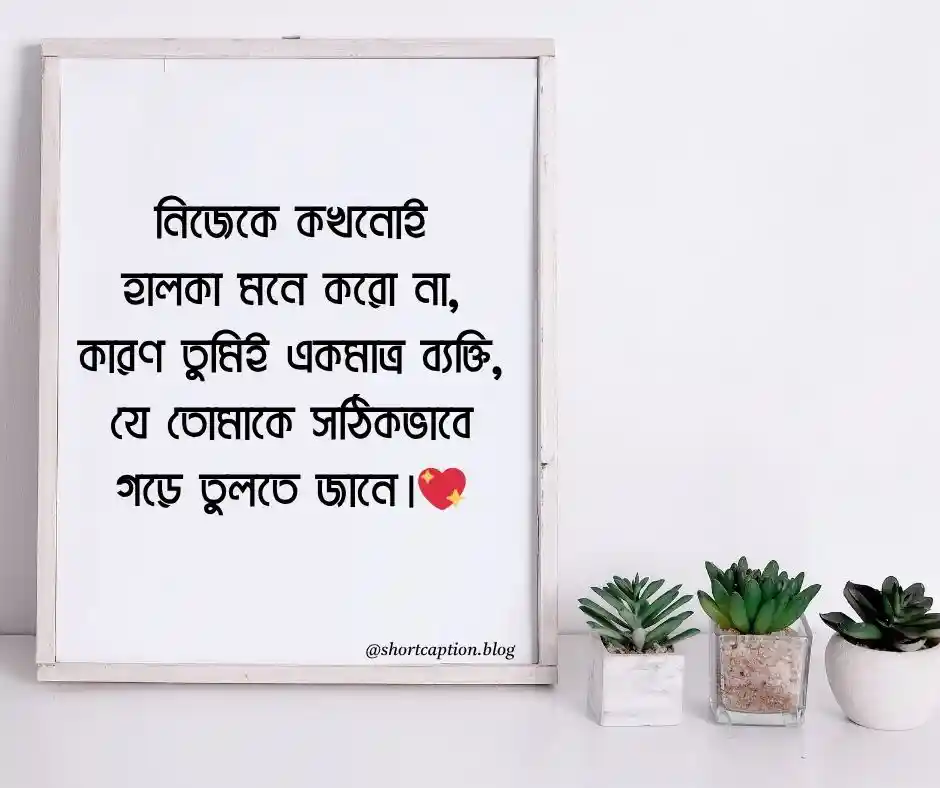 নিজেকে কখনোই
হালকা মনে করো না,
কারণ তুমিই একমাত্র ব্যক্তি,
যে তোমাকে সঠিকভাবে
গড়ে তুলতে জানে।💖
@shortcaption.blog